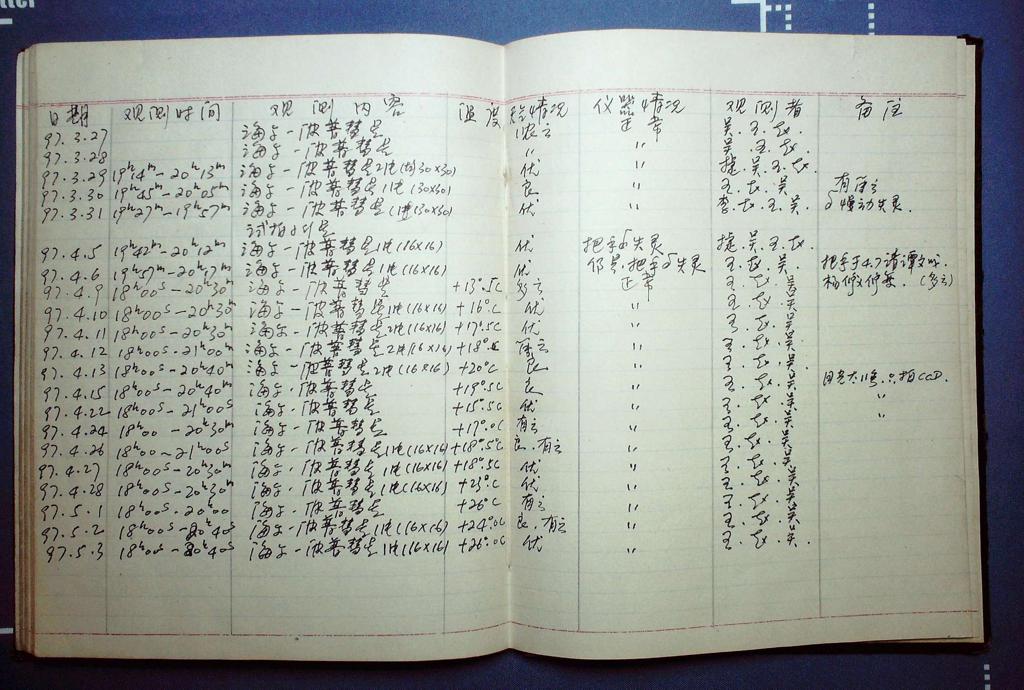 tter
日期 观测时间 观测内容 温度 情况 仪器情况 观测者 备注
97.3.27 海尔-波普彗星 浓云 正常 吴.王.赵.
97.3.28 海尔-波普彗星 〃 〃 吴.王.赵.
97.3.29 19ʰ14ᵐ-20ʰ13ᵐ 海尔-波普彗星2张(30×30) 优 〃 捷.吴.王.赵.
97.3.30 19ʰ45ᵐ-20ʰ05ᵐ 海尔-波普彗星1张(30×30) 良 〃 王.赵.吴. 有薄云
97.3.31 19ʰ27ᵐ-19ʰ57ᵐ 海尔-波普彗星(1张(30×30) 优 〃 李.赵.王.吴. δ慢动失灵.
试拍
97.4.5 19ʰ42ᵐ-20ʰ12ᵐ 海尔-波普彗星1张(16×16) 优 把手δ失灵 捷.吴.王.赵.
97.4.6 19ʰ57ᵐ-20ʰ17ᵐ 海尔-波普彗星1张(16×16) 优 仍是把手δ失灵 王.赵.吴. 把手于4.7请谭
97.4.9 18ʰ00ˢ-20ʰ30ᵐ 海尔-波普彗星 +13°.5C 多云 正常 王.赵.吴. (多云)
97.4.10 18ʰ00ˢ-20ʰ30ᵐ 海尔-波普彗星1张(16×16) +16°C 优 〃 王.赵.吴.
97.4.11 18ʰ00ˢ-20ʰ30ᵐ 海尔-波普彗星2张(16×16) +17°.5C 优 〃 王.赵.吴.
97.4.12 18ʰ00ˢ-21ʰ00ᵐ 海尔-波普彗星2张(16×16) +18°C 薄云 〃 王.赵.吴.
97.4.13 18ʰ00ˢ-20ʰ40ᵐ 海尔-波普彗星2张(16×16) +20°C 良 〃 王.赵.吴.
97.4.15 18ʰ00ˢ-20ʰ40ᵐ 海尔-波普彗星 +19°.5C 良 〃 王.赵.吴. 月亮太 只拍CCD.
97.4.22 18ʰ00ˢ-21ʰ00ˢ 海尔-波普彗星 +15°.5C 优 〃 王.赵.吴. 〃
97.4.24 18ʰ00-20ʰ30ᵐ 海尔-波普彗星 +17°.0C 有云 〃 王.赵.吴. 〃
97.4.26 18ʰ00-21ʰ00ˢ 海尔-波普彗星1张(16×16) +18°.5C 良.有云 〃 王.赵.吴.
97.4.27 18ʰ00ˢ-20ʰ30ᵐ 海尔-波普彗星1张(16×16) +18°.5C 优 〃 王.赵.吴.
97.4.28 18ʰ00ˢ-20ʰ30ᵐ 海尔-波普彗星1张(16×16) +23°C 优 〃 王.赵.吴.
97.5.1 18ʰ00ˢ-20ʰ00 海尔-波普彗星 +26°C 有云 〃 王.赵.吴.
97.5.2 18ʰ00ˢ-20ʰ40ˢ 海尔-波普彗星1张(16×16) +24°.0C 良.有云 〃 王.赵.吴.
97.5.3 18ʰ00ˢ-20ʰ40ˢ 海尔-波普彗星1张(16×16) +26°.0C 优 〃 王.赵.吴.